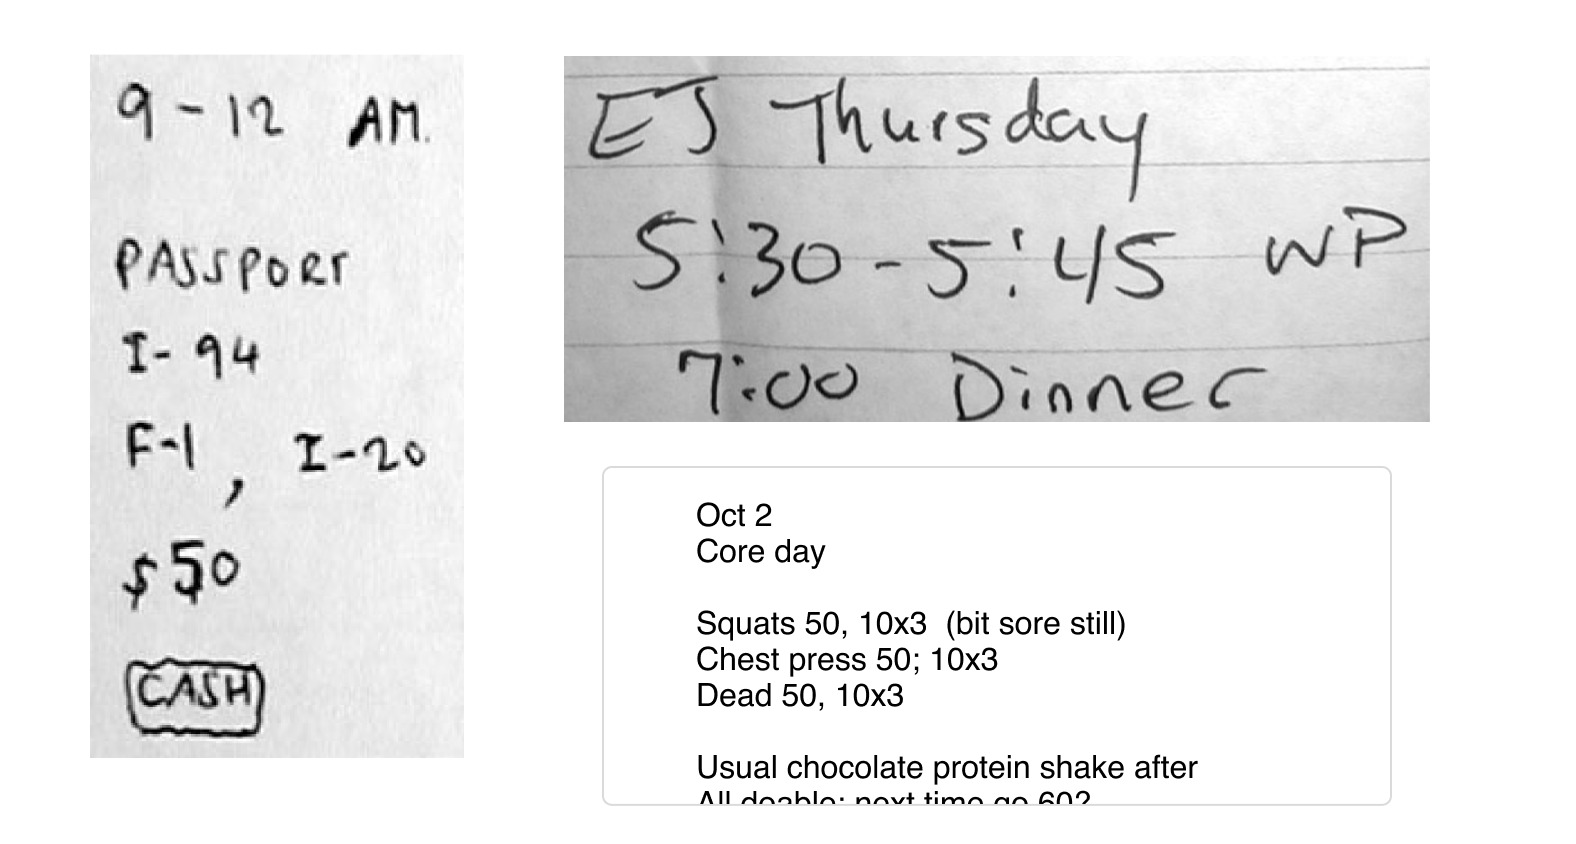 9 - 12 AM.
PASSPORT
I- 94
F-1, I-20
$50
CASH
EJ Thursday
5:30 - 5:45 WP
7:00 Dinner
Oct 2
Core day
Squats 50, 10x3 (bit sore still)
Chest press 50; 10x3
Dead 50, 10x3
Usual chocolate protein shake after
All doable; next time go 60?